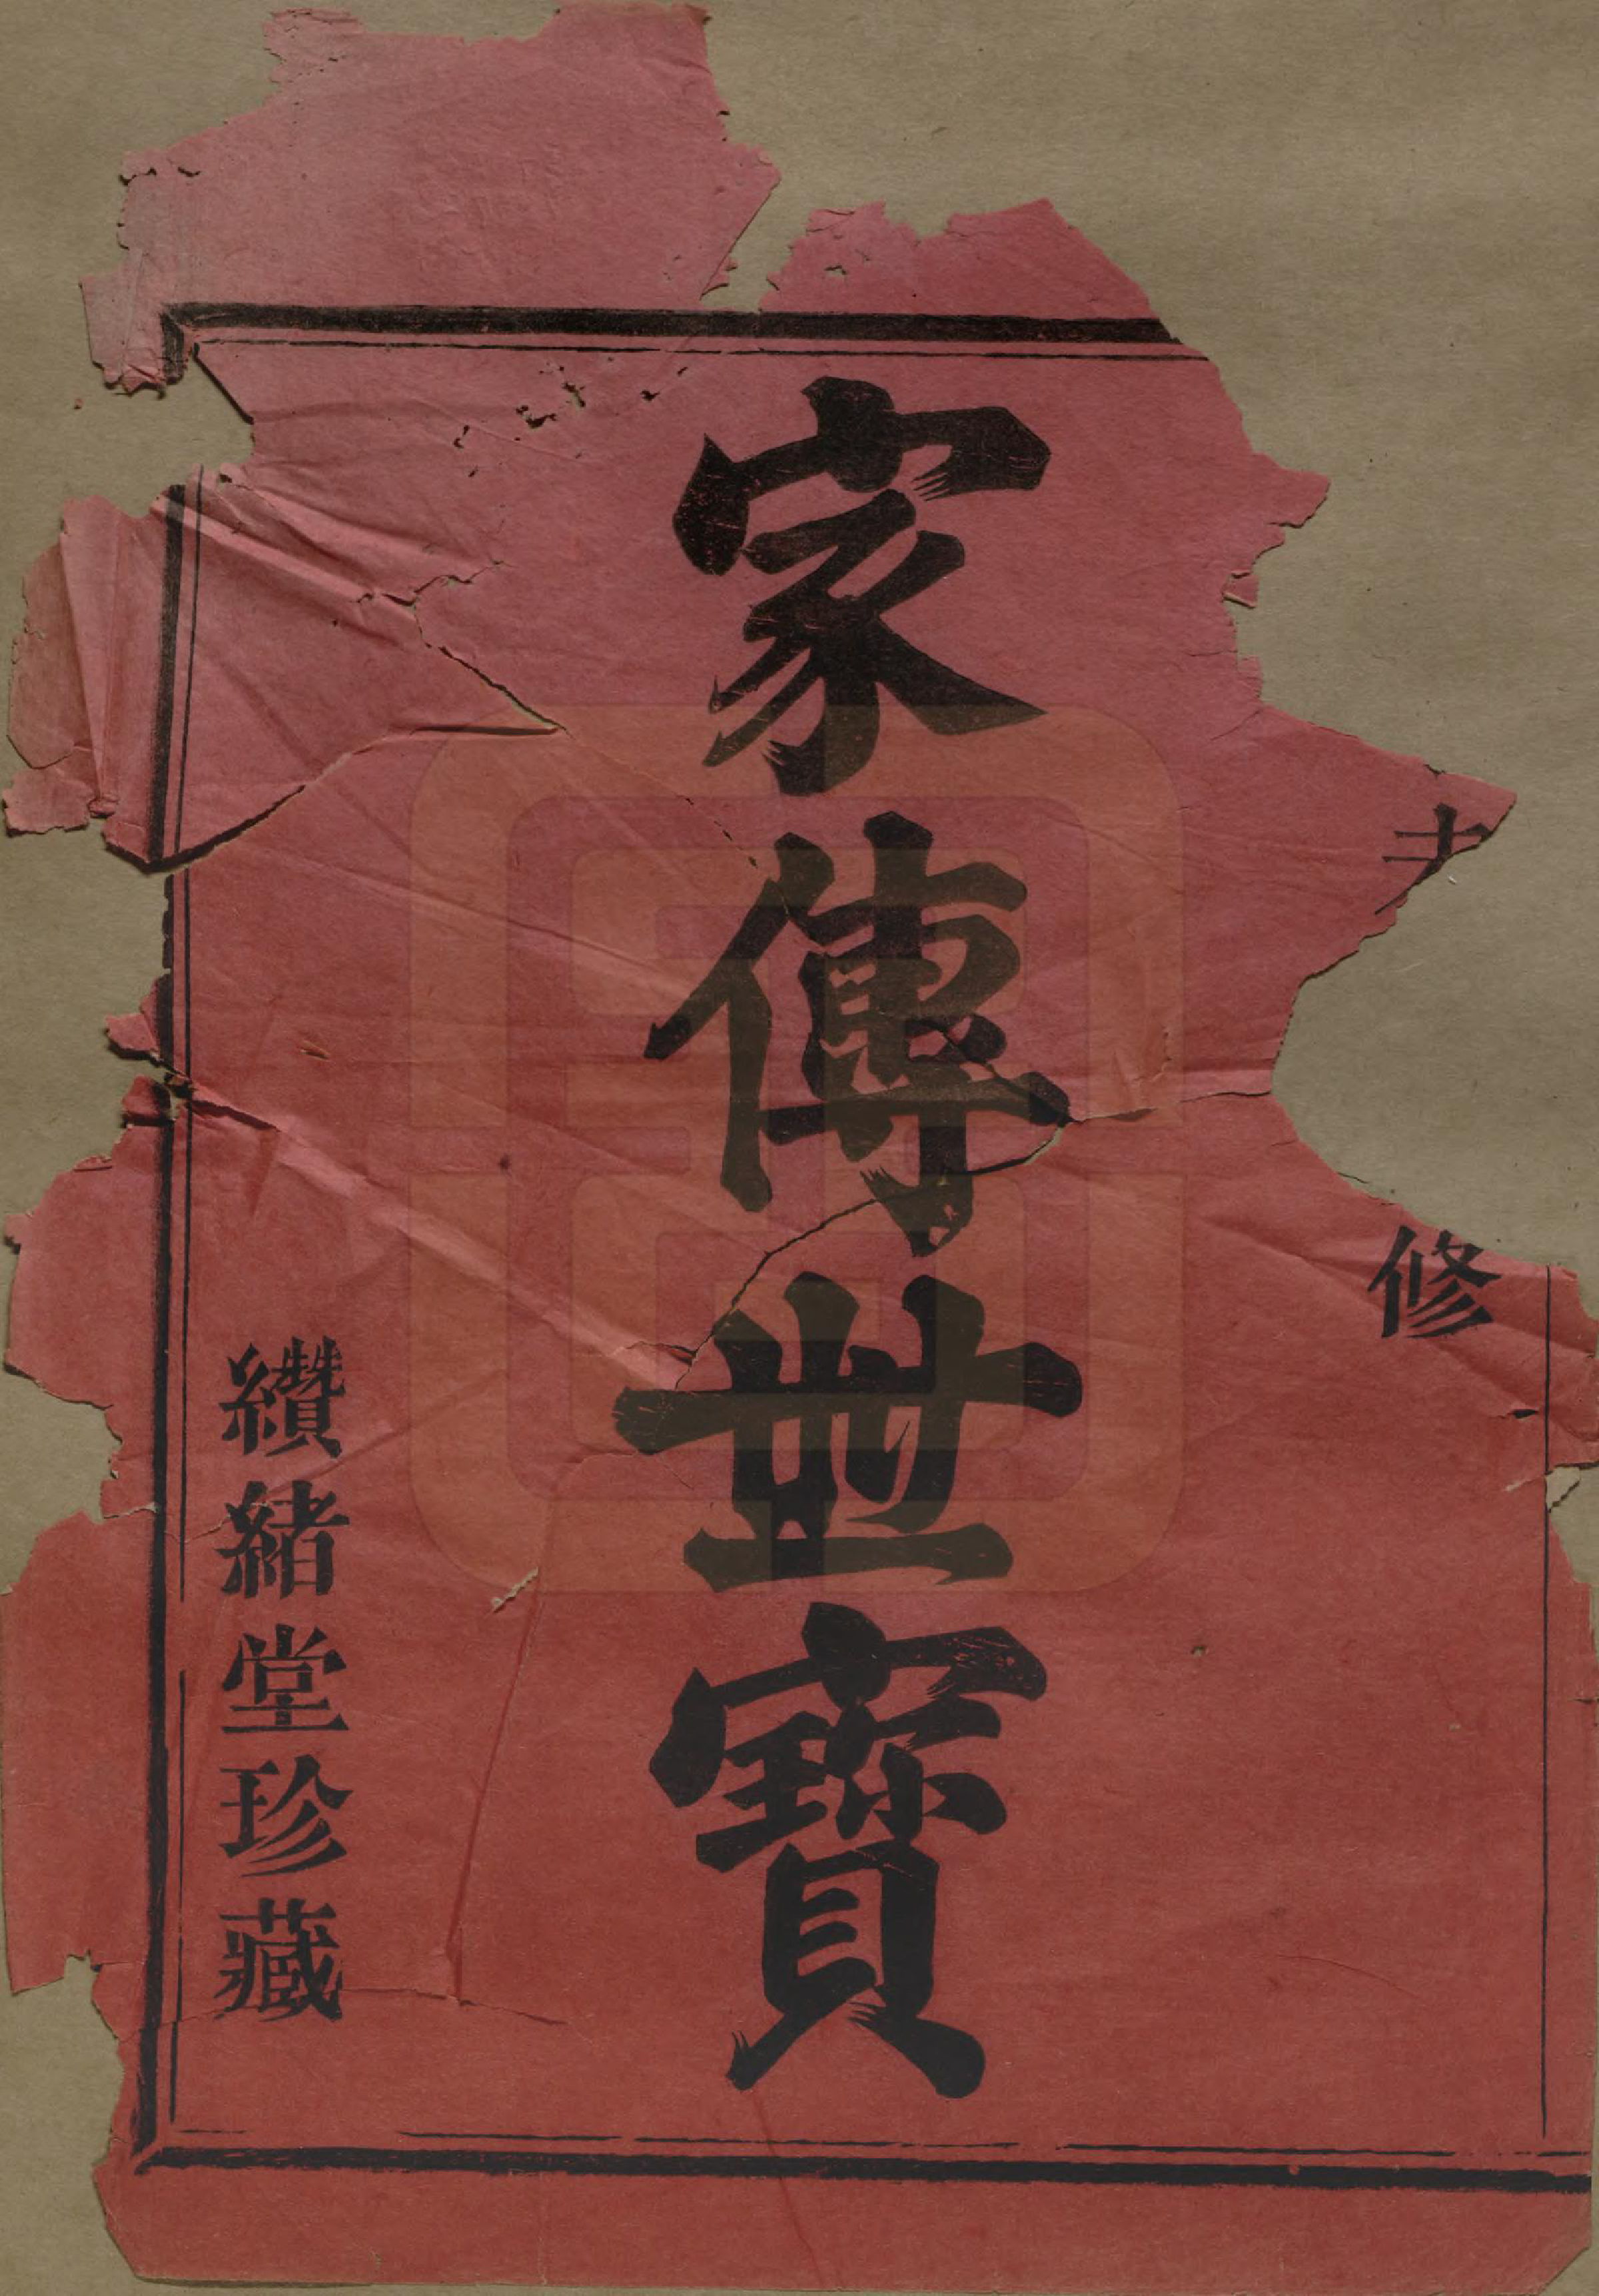 修
家傳世寶
纘緒堂珍藏